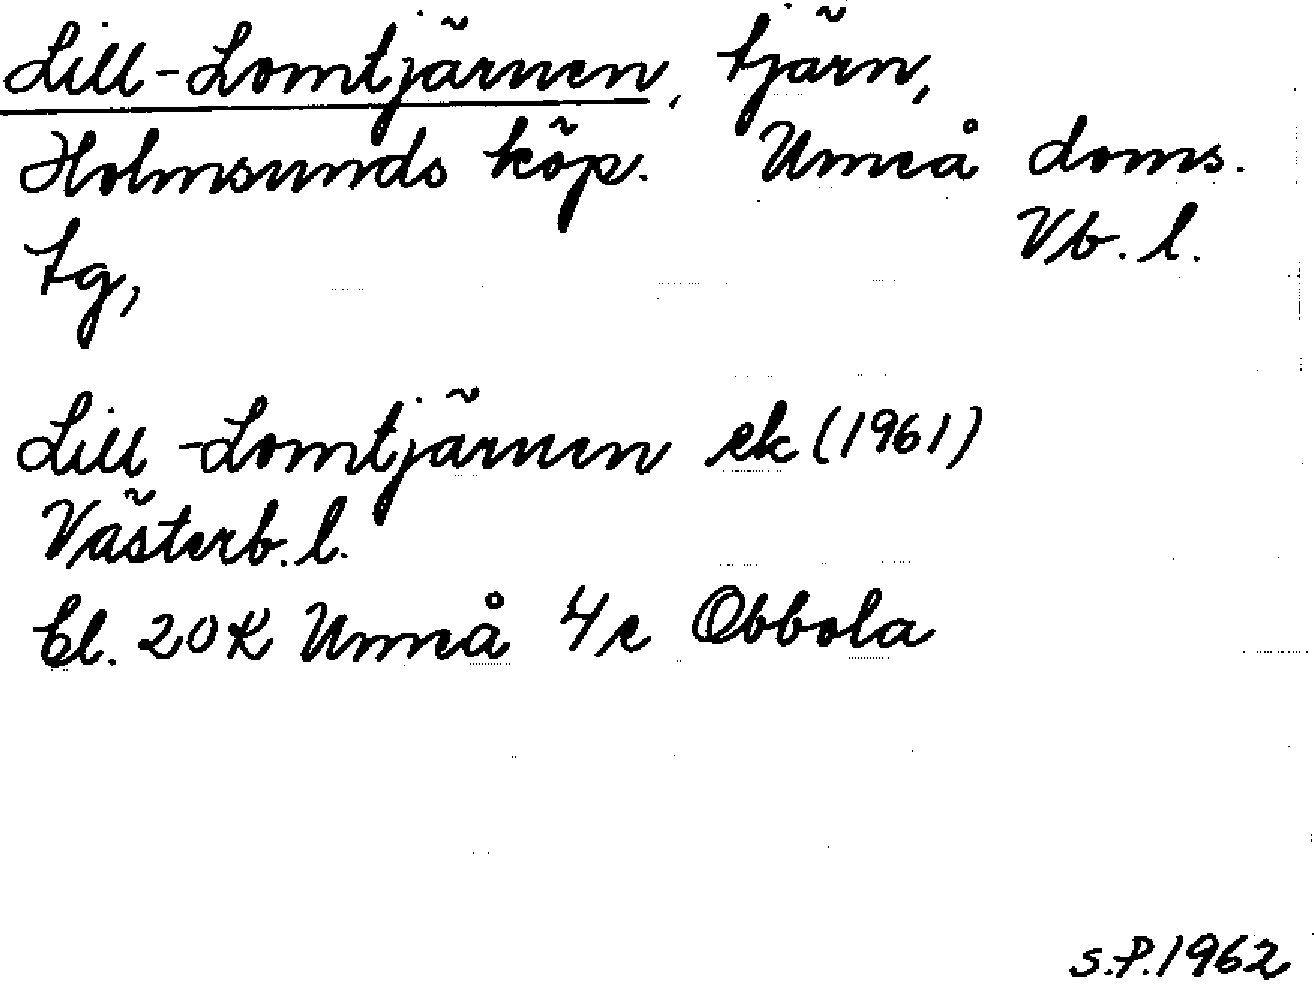 Lill-Lomtjärnen, tjärn,
Holmsunds köp. Umeå doms.
tg, Vb. l.
Lill-Lomtjärnen ek (1961)
Västerb. l.
bl. 20K Umeå 4c Obbola
S.P. 1962